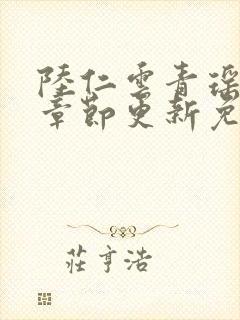 陸仁雲青瑶
章節更新免
莊亨浩